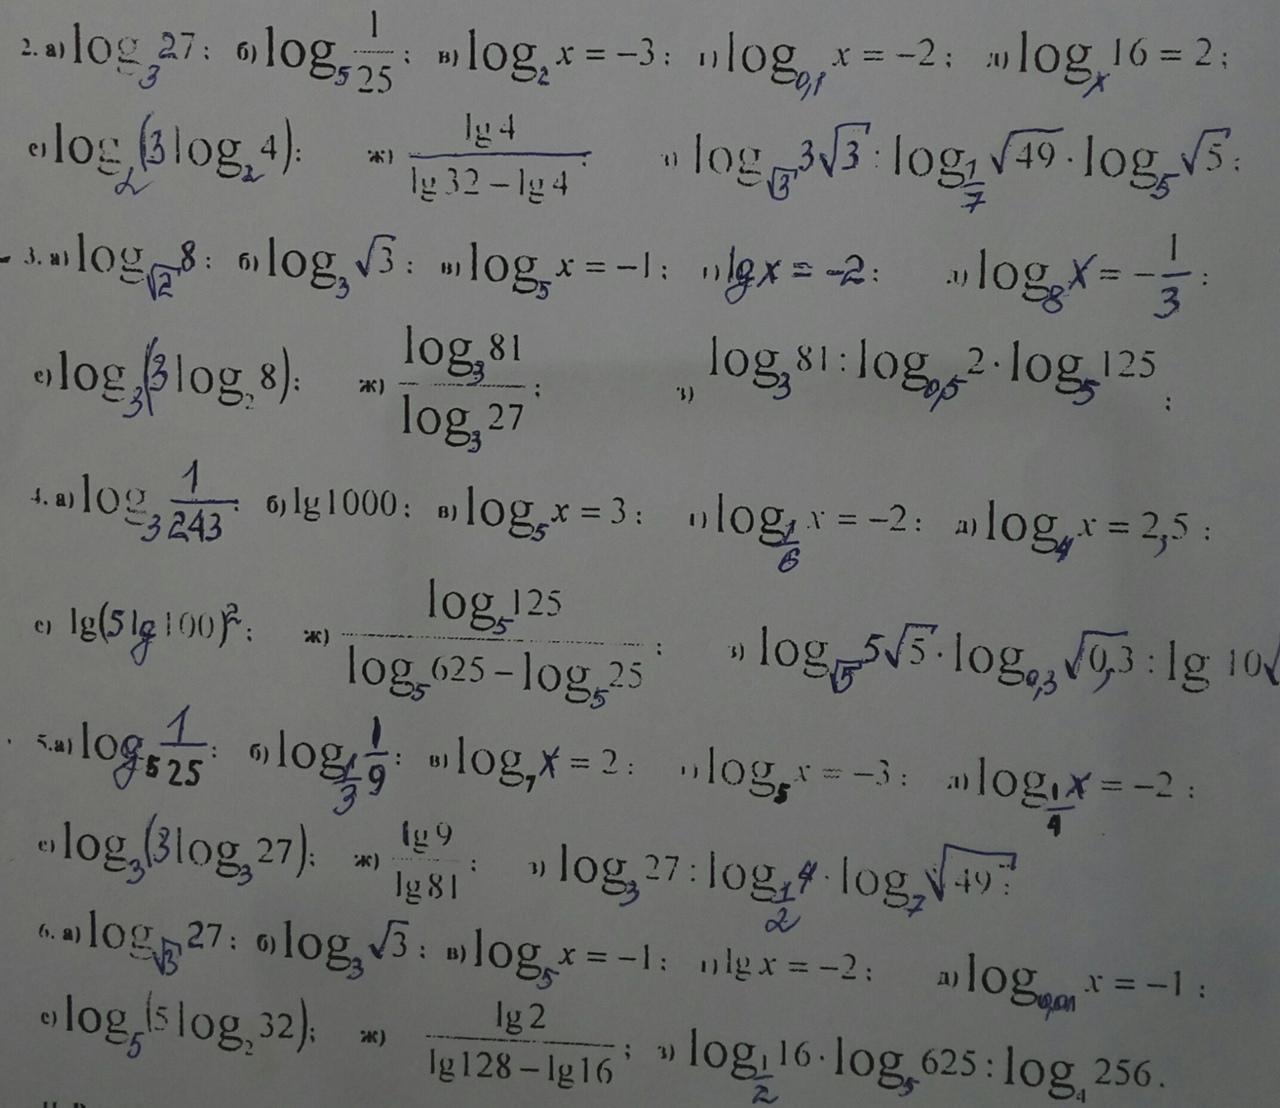 2. а) log₃ 27; б) log₅ 1/25; в) log₂ x = −3; г) log₀,₁ x = −2; д) logₓ 16 = 2;
е) log₂(3 log₂ 4); ж) lg 4 / (lg 32 − lg 4); з) log_√3 3√3 : log_1/7 √49 · log₅ √5;
3. а) log_√2 8; б) log₃ √3; в) log₅ x = −1; г) lg x = −2; д) log₈ x = −1/3;
е) log₃(3 log₂ 8); ж) log₃ 81 / log₃ 27; з) log₃ 81 : log₀,₅ 2 · log₅ 125;
4. а) log₃ 1/243; б) lg 1000; в) log₅ x = 3; г) log_1/6 x = −2; д) log₄ x = 2,5;
е) lg(5 lg 100)²; ж) log₅ 125 / (log₅ 625 − log₅ 25); з) log_√5 5√5 · log₀,₃ √0,3 : lg 10√
5. а) log₅ 1/25; б) log_1/3 1/9; в) log₇ x = 2; г) log₅ x = −3; д) log_1/4 x = −2;
е) log₃(3 log₃ 27); ж) lg 9 / lg 81; з) log₃ 27 : log_1/2 4 · log₇ √49;
6. а) log_√3 27; б) log₃ √3; в) log₅ x = −1; г) lg x = −2; д) log₀,₀₁ x = −1;
е) log₅(5 log₂ 32); ж) lg 2 / (lg 128 − lg 16); з) log_1/2 16 · log₅ 625 : log₄ 256.